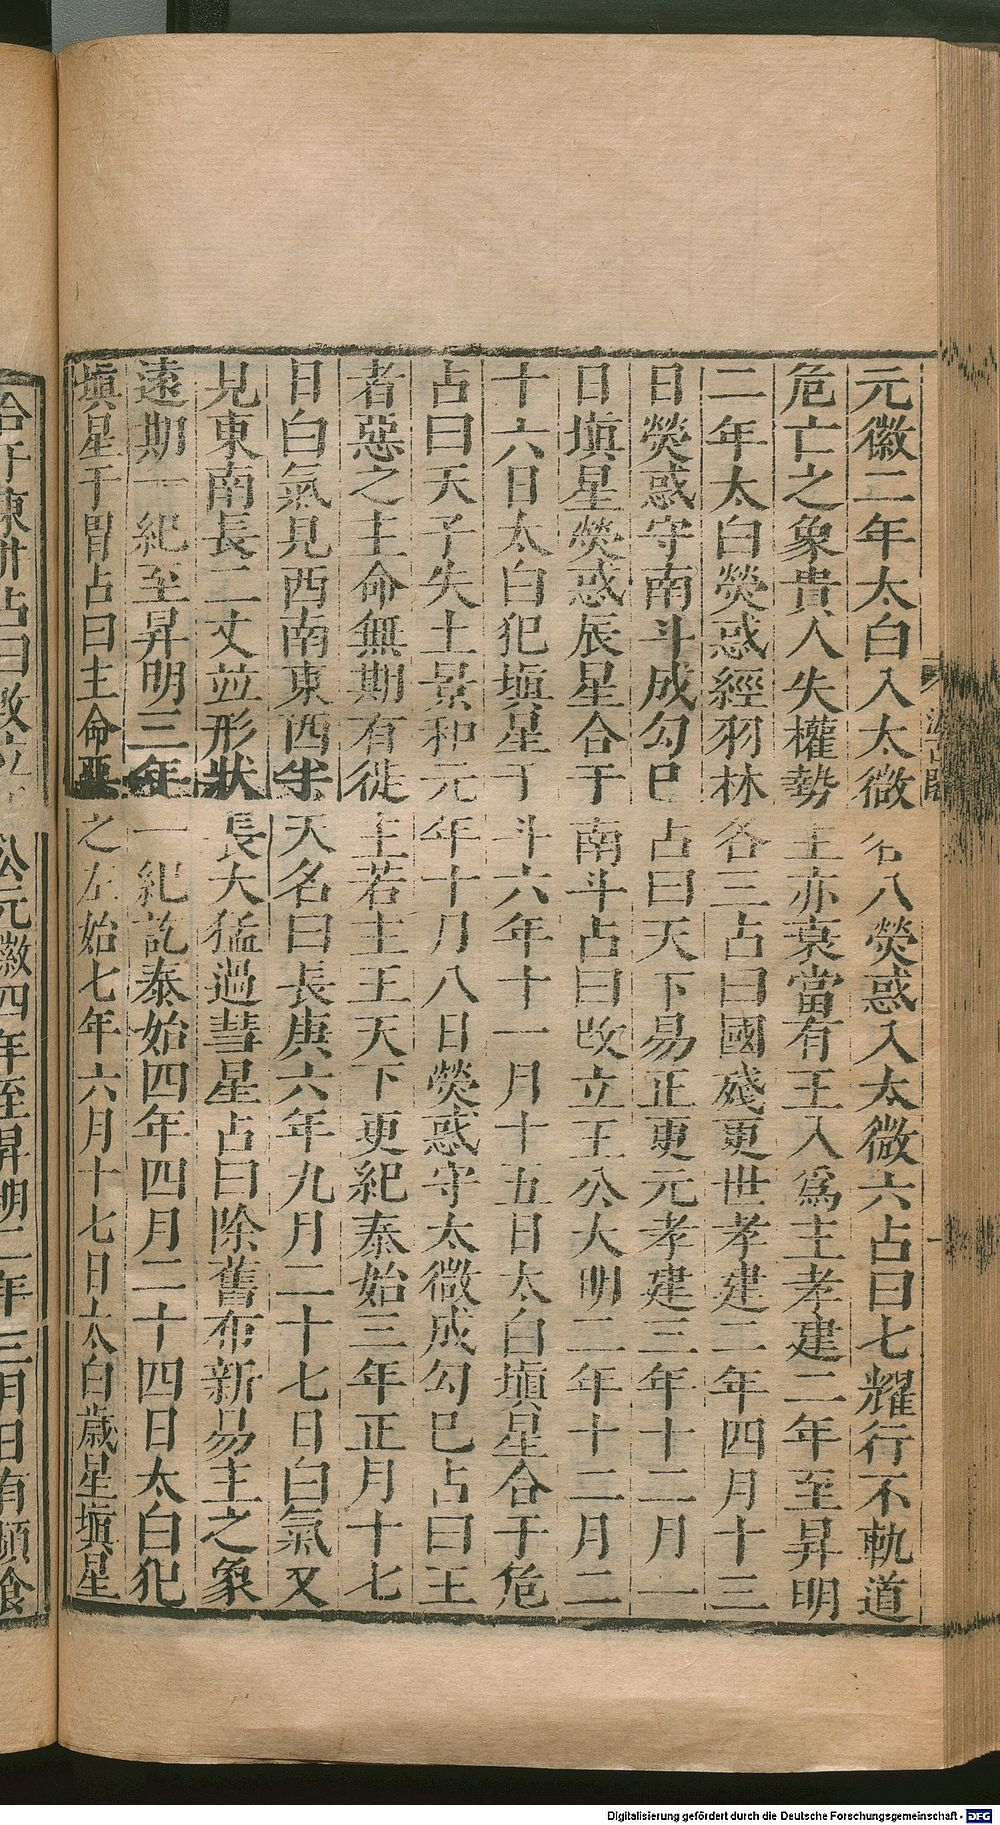 元徽二年太白入太微各八熒惑入太微六占曰七耀行不軌道
危亡之象貴人失權勢主亦衰當有王入爲主孝建二年至昇明
二年太白熒惑經羽林各三占曰國殘更世孝建二年四月十三
日熒惑守南斗成勾巳占曰天下易正更元孝建三年十二月一
日塡星熒惑辰星合于南斗占曰改立王公大明二年十二月二
十六日太白犯塡星于斗六年十一月十五日太白塡星合于危
占曰天子失土景和元年十月八日熒惑守太微成勾巳占曰王
者惡之主命無期有徙主若主王天下更紀泰始三年正月十七
日白氣見西南東西半天名曰長庚六年九月二十七日白氣又
見東南長二丈並形狀長大猛過彗星占曰除舊布新易主之象
遠期一紀至昇明三年一紀訖泰始四年四月二十四日太白犯
塡星于胃占曰主命惡之左始七年六月十七日太白歳星塡星
占曰改立
元徽四年至昇明二年三月日有頻食
Digitalisierung gefördert durch die Deutsche Forschungsgemeinschaft - DFG